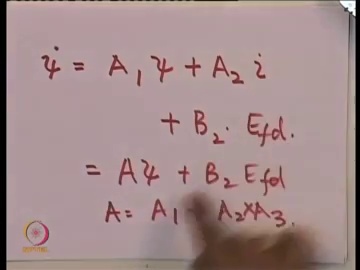 ψ̇ = A₁ ψ + A₂ i
+ B₂. E_fd.
= Aψ + B₂ E_fd
A = A₁ A₂×A₃.